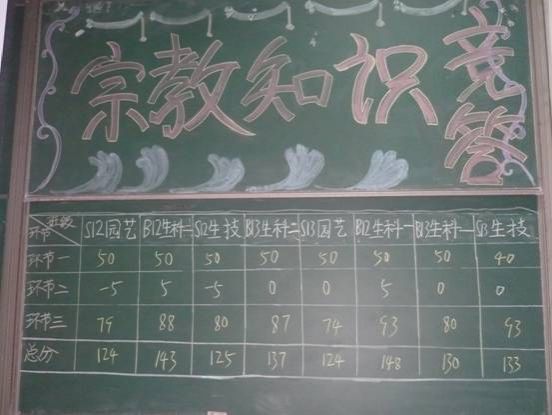 宗教知识竞答
环节 班级 S12园艺 B12生科二 S12生技 B13生科二 S13园艺 B12生科一 B13生科一 S13生技
环节一 50 50 50 50 50 50 50 40
环节二 -5 5 -5 0 0 5 0 0
环节三 79 88 80 87 74 93 80 93
总分 124 143 125 137 124 148 130 133